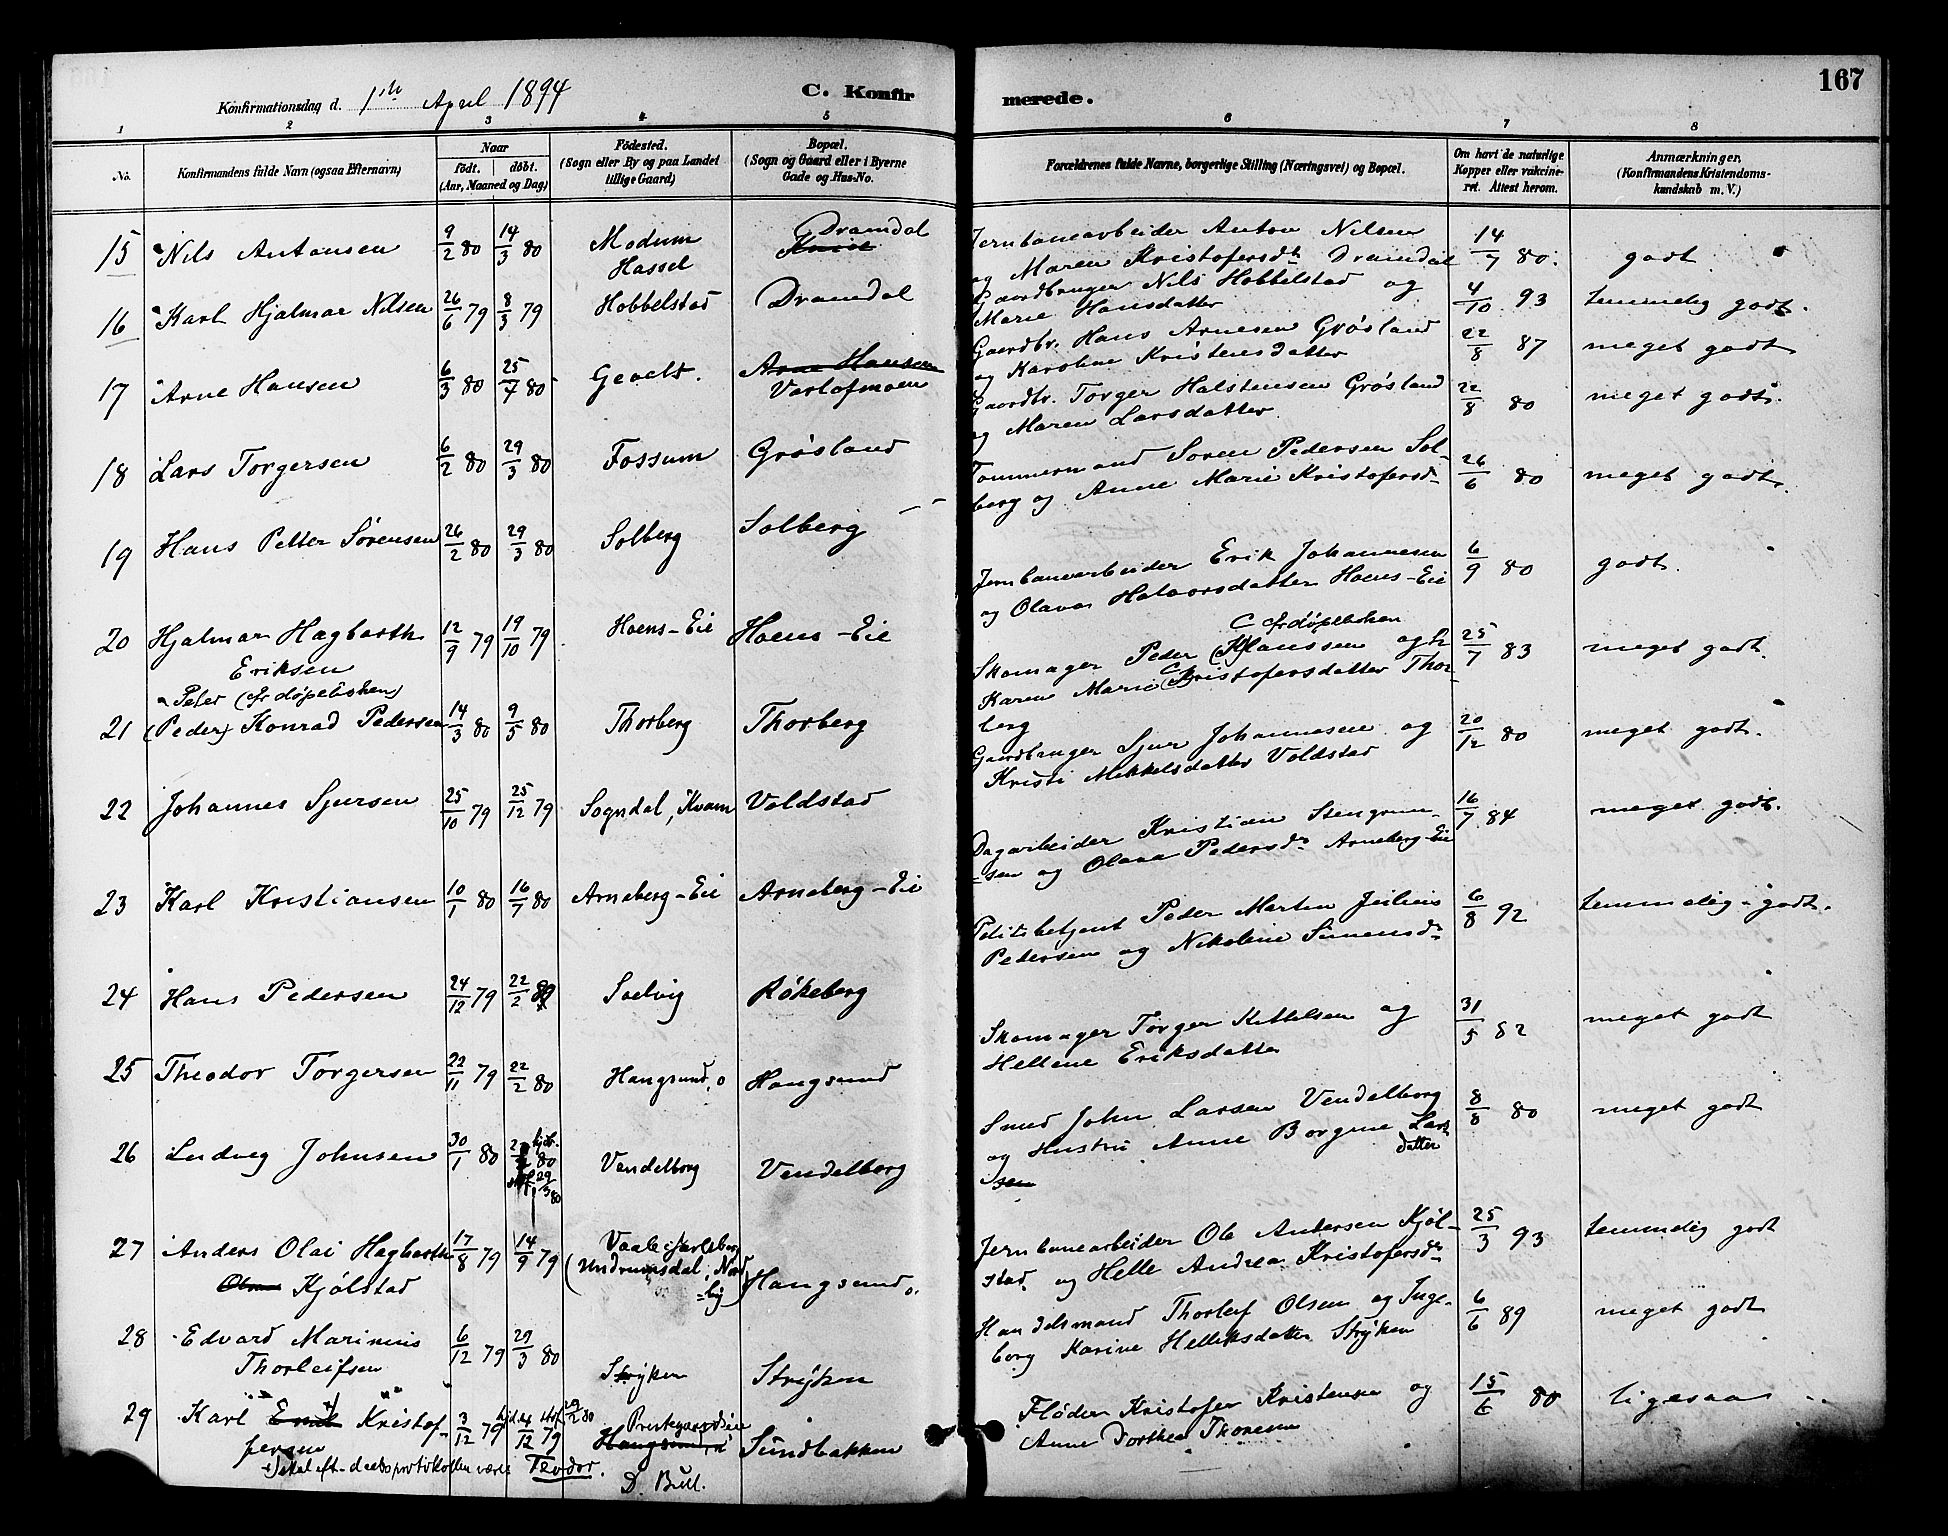 167
Konfirmationsdag d. 1ste April 1894 C. Konfirmerede.
1 2 3 4 5 6 7 8
No. Konfirmandens fulde Navn (ogsaa Efternavn) Naar født. døbt. (Aar, Maaned og Dag) Fødested. (Sogn eller By og paa Landet tillige Gaard) Bopæl. (Sogn og Gaard eller i Byerne Gade og Hus-No. Forældrenes fulde Navne, borgerlige Stilling (Næringsvei) og Bopæl. Om havt de naturlige Kopper eller vakcineret. Attest herom. Anmærkninger, (Konfirmandens Kristendomskundskab m. V.)
15 Nils Antonsen 9/2 80 14/3 80 Modum Hassel Dramdal Jernbanearbeider Anton Nilsen og Maren Kristofersdr Dramdal 14/7 80. godt
16 Karl Hjalmar Nilsen 26/6 79 8/3 79 Hobbelstad Dramdal Gaardbruger Nils Hobbelstad og Marie Hansdatter 4/10 93 temmelig godt.
17 Arne Hansen 6/3 80 25/7 80 Arne Hansen Gaardbr. Hans Arnesen Grøsland og Karoline Kristensdatter 22/8 87 meget godt
18 Lars Torgersen 6/2 80 29/3 80 Fossum Grøsland Gaardbr. Torger Halstensen Grøsland og Maren Larsdatter 22/8 80 meget godt.
19 Hans Petter Sørensen 26/2 80 29/3 80 Solberg Solberg Tømmermand Søren Pedersen Solberg og Anne Marie Kristofersd. 26/6 80 meget godt.
20 Hjalmar Hagbarth Eriksen 12/9 79 19/10 79 Hoens-Eie Hoens-Eie Jernbanearbeider Erik Johannesen og Olava Halvorsdatter Hoens-Eie 6/9 80 godt.
Peter (cfr døpeboken)
21 (Peder) Konrad Pedersen 14/3 80 9/5 80 Thorberg Thorberg Skomager Peder Hanssen og Karen Marie Kristofersdatter Thorberg 25/7 83 meget godt.
22 Johannes Sjursen 25/10 79 25/12 79 Sogndal, Kvam Voldstad Gaardbruger Sjur Johannesen og Kristi Mikkelsdatter Voldstad 20/12 80 meget godt.
23 Karl Kristiansen 10/1 80 16/7 80 Arneberg-Eie Arneberg-Eie Dagarbeider Kristian Stengrimsen og Olava Pedersdr Arneberg-Eie 16/7 84 meget godt.
24 Hans Pedersen 24/12 79 22/2 Svelvig Røkeberg Politibetjent Peder Martin Pedersen og Nikoline Simensdr 6/8 92 temmelig godt.
25 Theodor Torgersen 22/11 79 22/2 80 Haugsund Haugsund Skomager Torger Kittelsen og Hellene Eriksdatter 31/5 82 meget godt
26 Ludvig Johnsen 30/1 80 Vendelborg Vendelborg Smed John Larsen Vendelborg og Hustru Anne Borgine Larsdatter 8/8 80 meget godt
27 Anders Olai Hagbarth Kjølstad 17/8 79 14/9 79 Vaale i Jarlsberg (Undrumsdal, Nordby) Haugsund Jernbanearbeider Ole Andersen Kjølstad og Helle Andrea Kristofersdr 25/3 93 temmelig godt
28 Edvard Marinius Thorleifsen 6/12 79 29/3 80 Strýken Strýken Handelsmand Thorleif Olsen og Ingeborg Karine Helliksdatter Strýken 6/6 89 meget godt
29 Karl Emil Kristoffersen 3/12 79 Haugsund Sundbakken Fløder Kristofer Kristensen og Anne Dorthea Thoresen 15/6 80 ligesaa
skal eft. daabsprotokollen være Teodor. D. Bull.